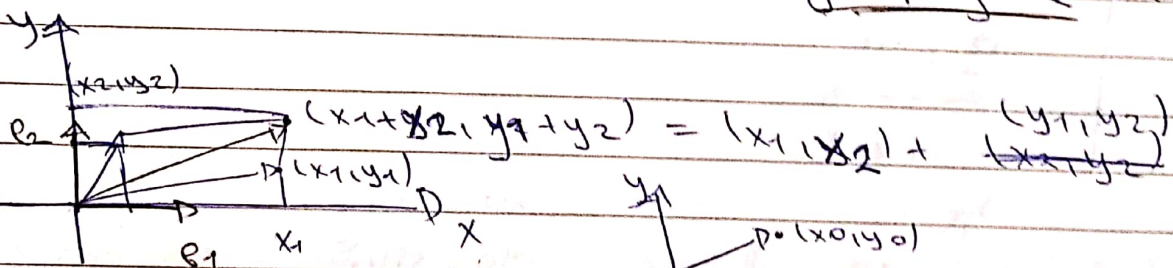 y
(x2,y2)
e2
(x1+x2, y1+y2) = (x1,x2) + (y1,y2)
(x1,y1)
x1
x
e1
y
(x0,y0)